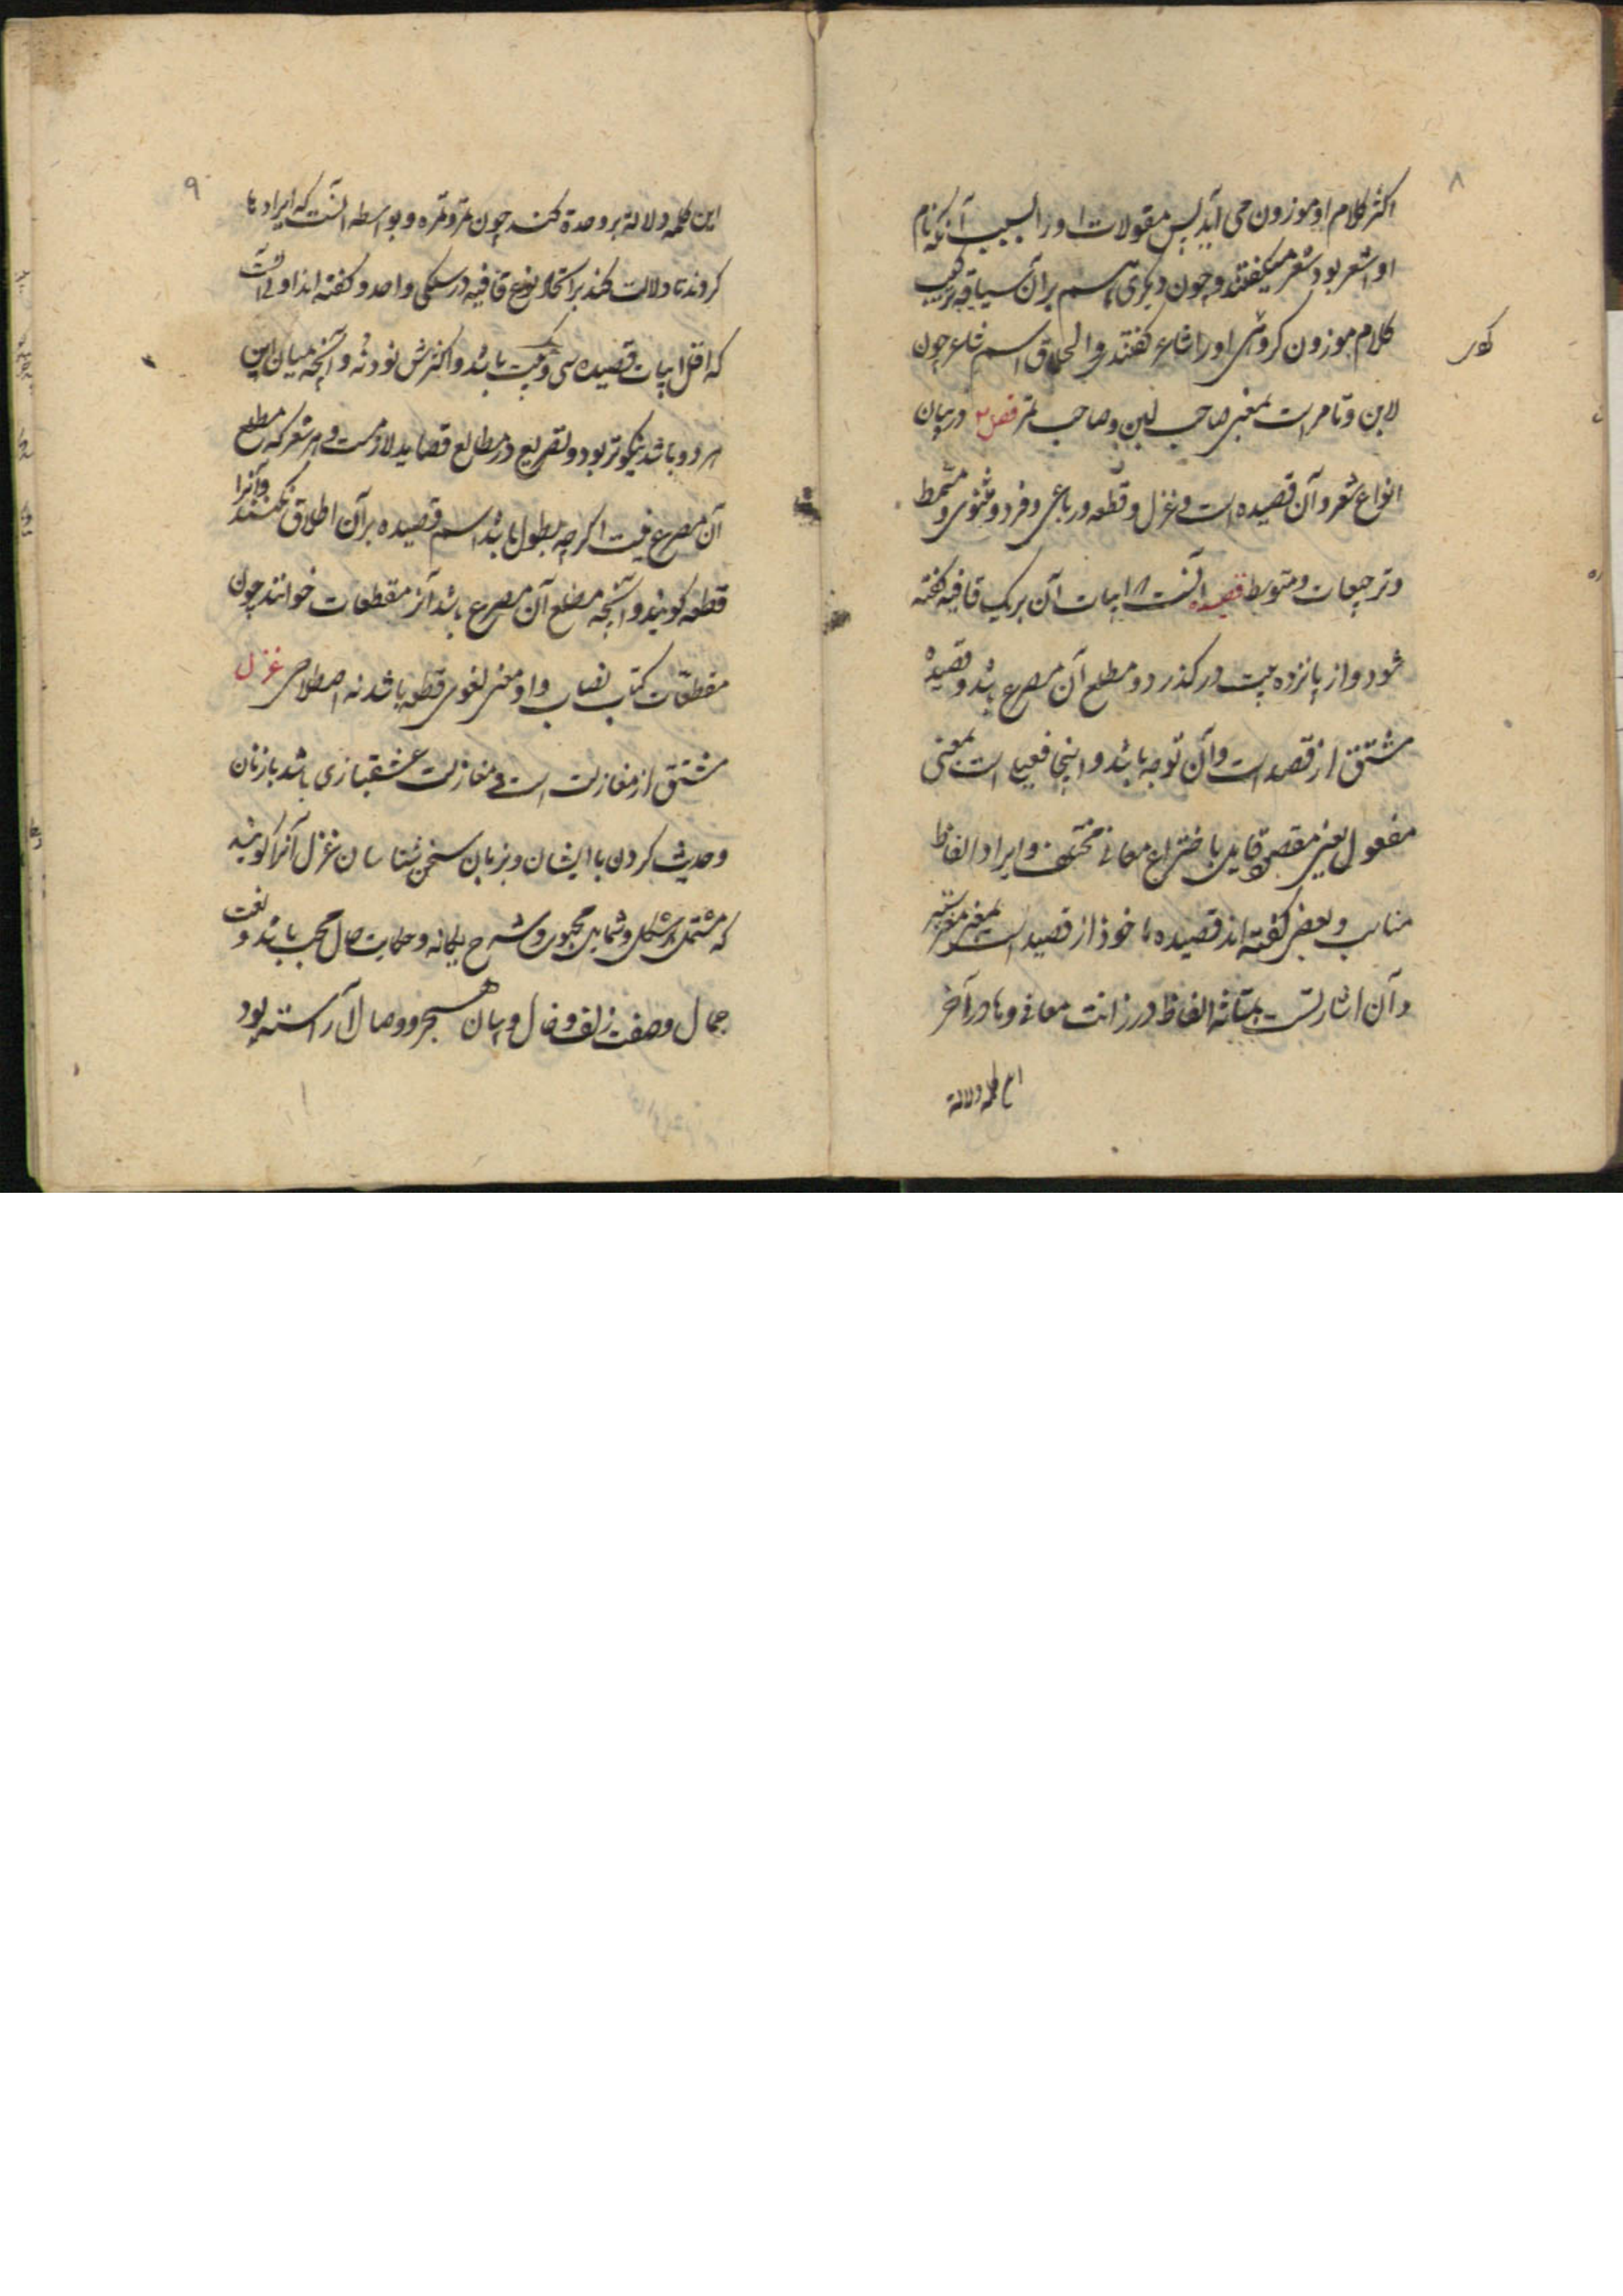 ۸
اکثر کلام او موزون می آید پس مقولات او را بسبب آنکه نام
او اشعر بود شعر میگفتند و چون دیگری هم بر آن سیاقه ترکیب
کلام موزون کردی او را شاعر گفتندی و الحاق اسم شاعر چون
لابن و تامر است بمعنی صاحب لبن و صاحب تمر فصل در بیان
انواع شعر و آن قصیده است و غزل و قطعه و رباعی و فرد و مثنوی و مسمط
و ترجیعات و متوسط قصیده آنست که ابیات آن بر یک قافیه گفته
شود و از پانزده بیت در گذرد و مطلع آن مصرع باشد و قصیده
مشتق از قصد است و آن توجه باشد و اینجا فعیل است بمعنی
مفعول یعنی مقصود قایل باختراع معانی مختلف و ایراد الفاظ
مناسب و بعضی گفته اند قصیده ماخوذ از قصید است بمعنی
و آن اشارتست بمتانه الفاظ و رزانت معانی و ها در آخر
این کلمه دلالة
۹
این کلمه دلالة بر وحدة کند چون تمر و تمره و بواسطه آنست که ایراد ها
کردند تا دلالت کند بر اتحاد نوع قافیه در سلکی واحد و گفته اند اولی آنست
که اقل ابیات قصیده سی و یک بیت باشد و اکثرش نود و نه و آنچه میان این
هر دو باشد نیکوتر بود و تصریع در مطالع قصاید لازمست و هر شعر که مطلع
آن مصرع نیست اگر چه مطول باشد اسم قصیده بر آن اطلاق نکنند و آنرا
قطعه گویند و آنچه مطلع آن مصرع باشد آنرا مقطعات خوانند چون
مقطعات کتاب نصاب و او معنی لغوی قطعه باشد نه اصطلاحی غزل
مشتق از مغازلت است و مغازلت عشقبازی باشد با زنان
و حدیث کردن با ایشان و بزبان سخن شناسان غزل آنرا گویند
که مشتمل بر شکل و شمایل محبوب و شرح یگانه و حکایت حال محب باشد و نعت
جمال و صفت زلف و خال و بیان هجر و وصال آراسته بود